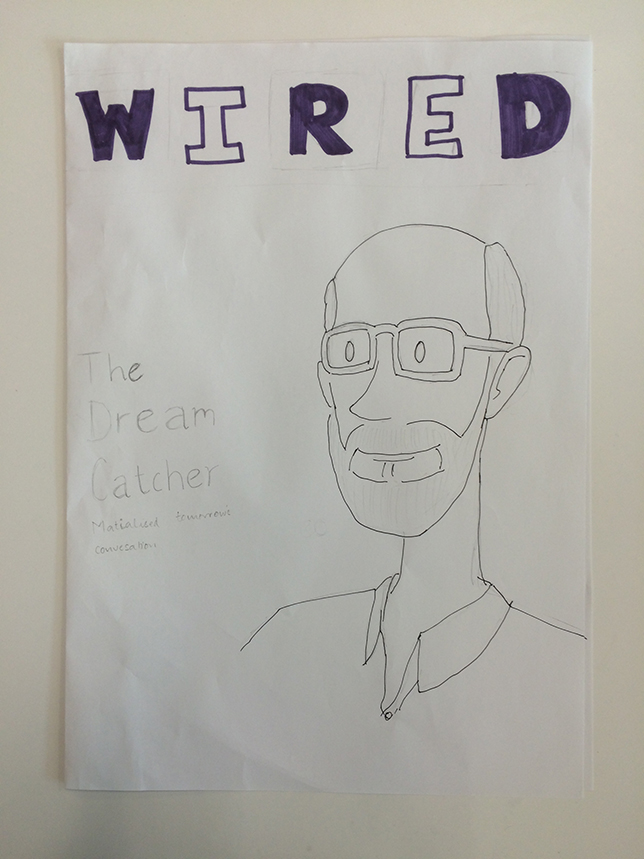 WIRED
The
Dream
Catcher
Matialised tomorrow's
convesation